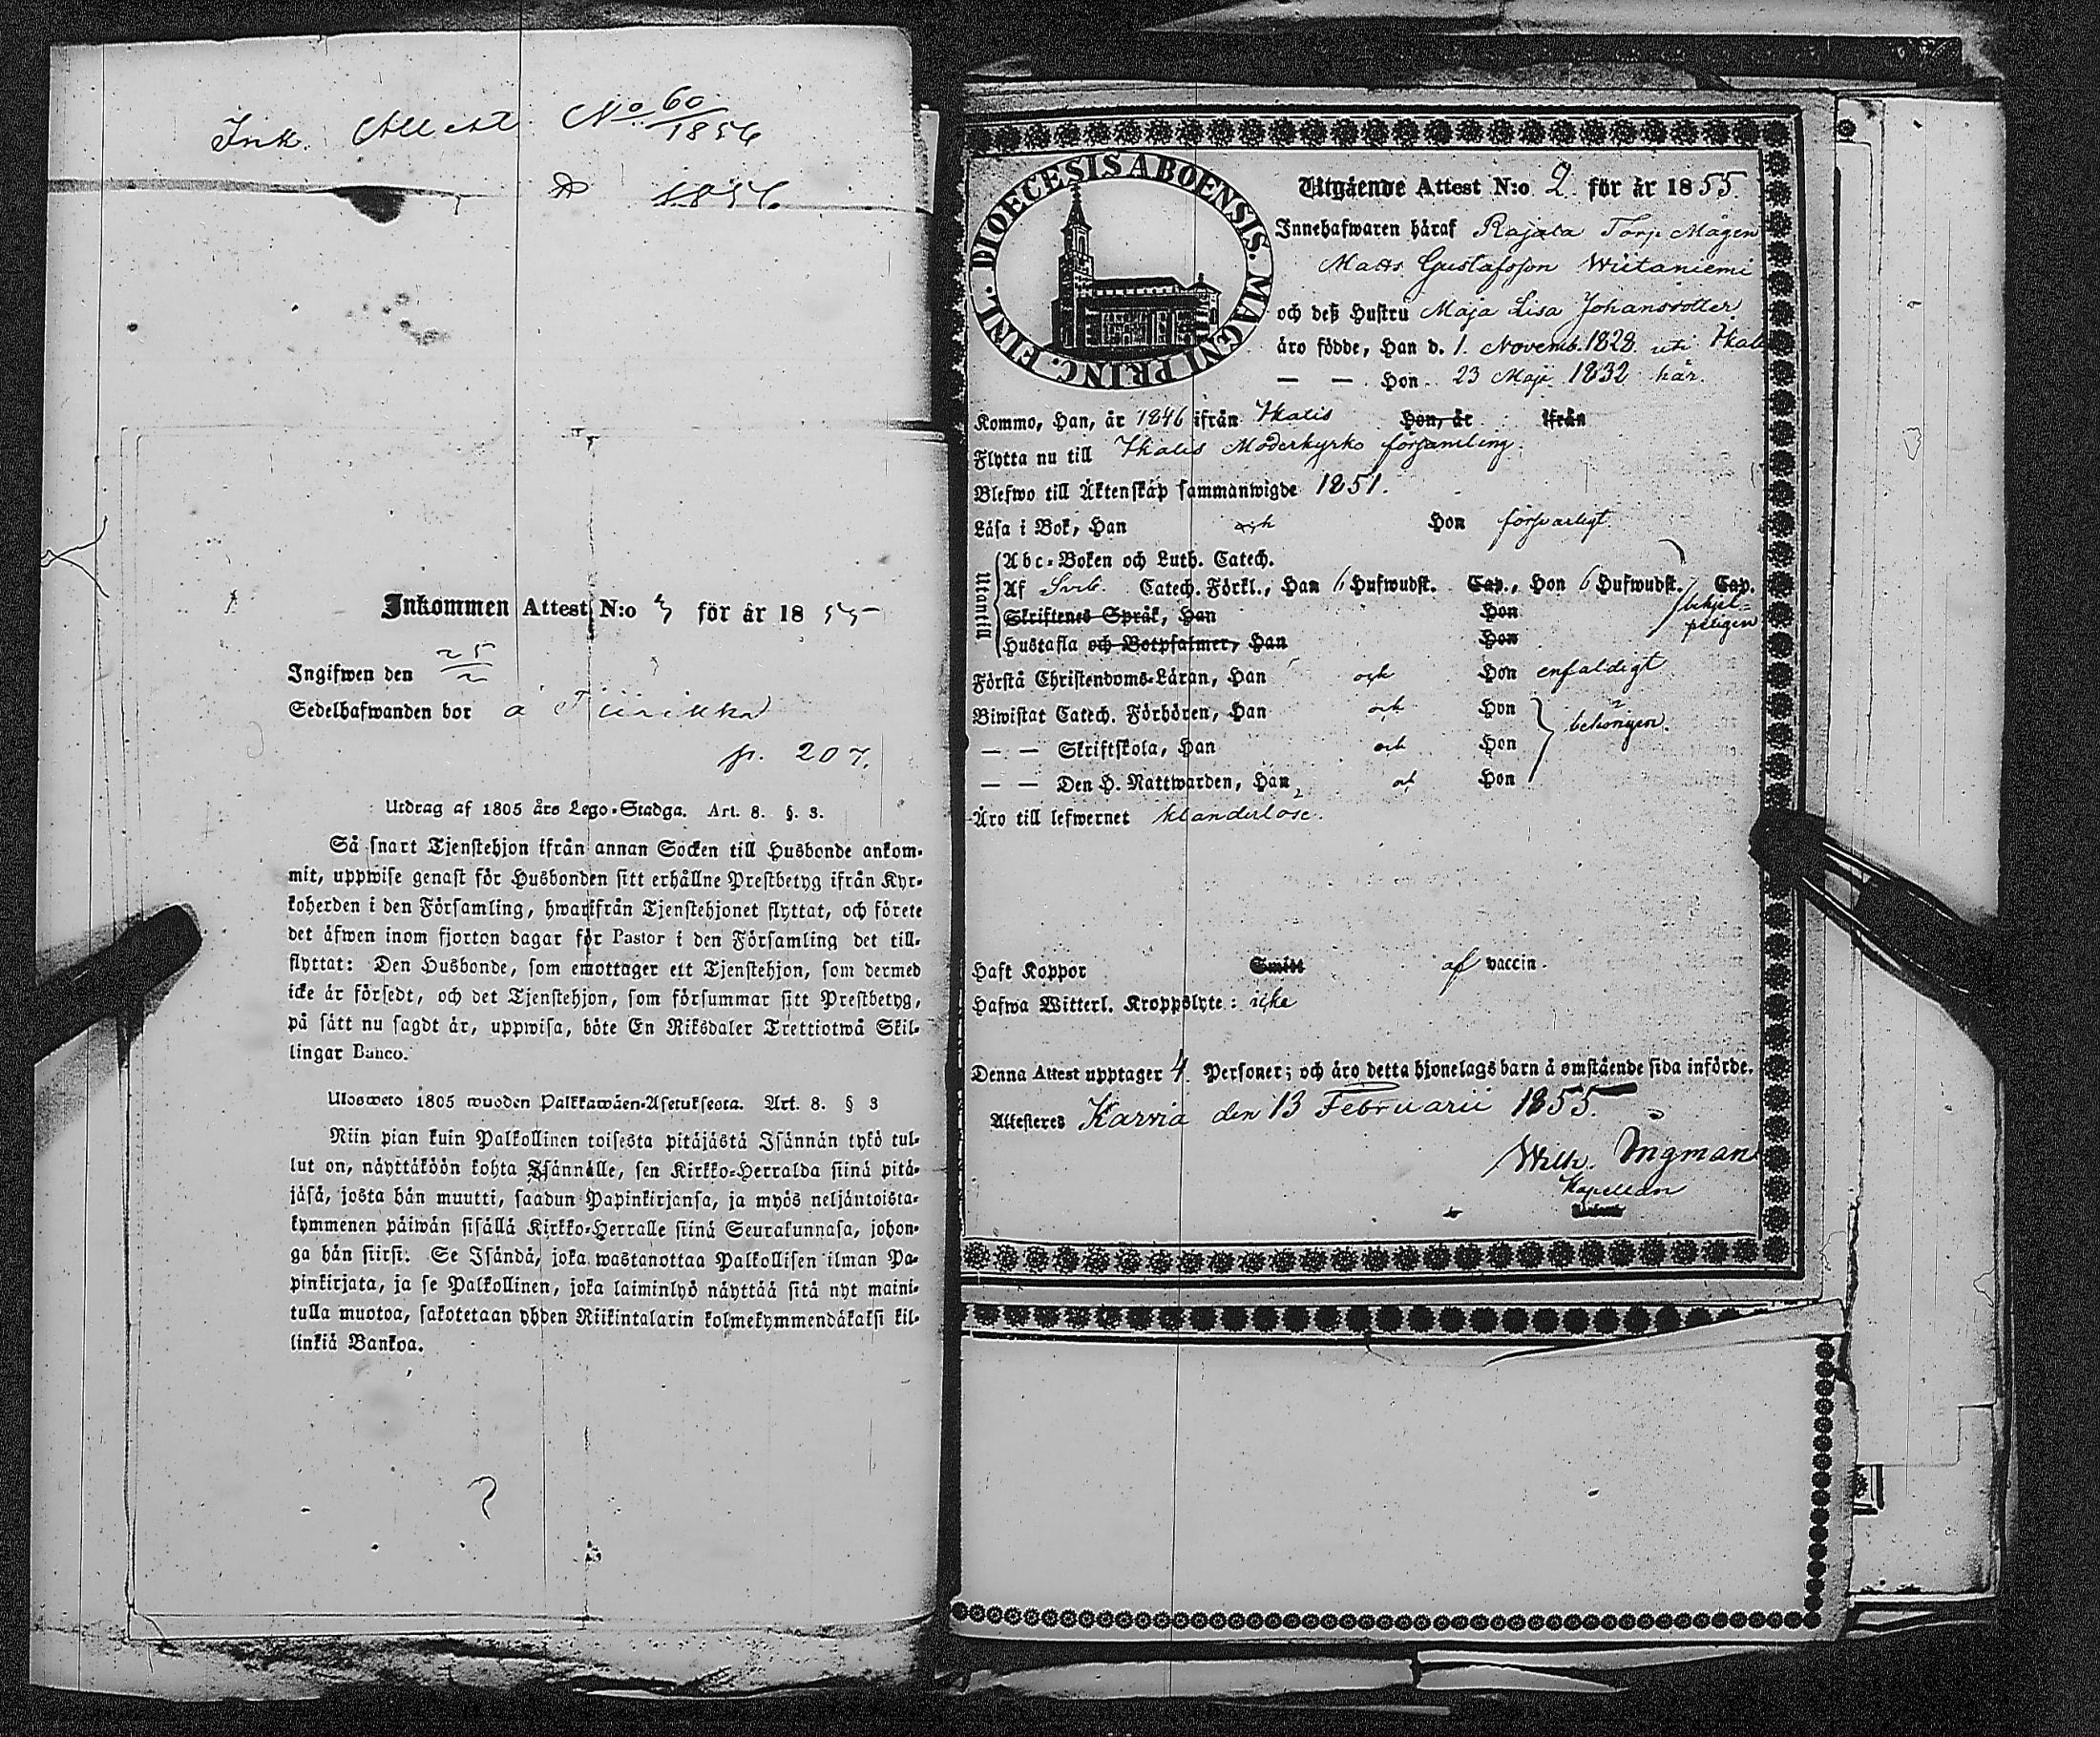 Ink. Attest No 60/1856
1856
Inkommen Attest N:o 3 för år 1855
Ingifwen den 25/2
Sedelhafwanden bor å Tiirikka
p. 207.
Utdrag af 1805 års Lego-Stadga. Art. 8. §. 3.
Så snart Tjenstehjon ifrån annan Socken till Husbonde ankom-
mit, uppwise genast för Husbonden sitt erhållne Prestbetyg ifrån Kyr-
koherden i den Församling, hwarifrån Tjenstehjonet flyttat, och förete
det äfwen inom fjorton dagar för Pastor i den Församling det till-
flyttat: Den Husbonde, som emottager ett Tjenstehjon, som dermed
icke är försedt, och det Tjenstehjon, som försummar sitt Prestbetyg,
på sätt nu sagdt är, uppwisa, böte En Riksdaler Trettiotwå Skil-
lingar Banco.
Ulosweto 1805 wuoden Palkkawäen-Asetuksesta. Art. 8. § 3
Niin pian kuin Palkollinen toisesta pitäjästä Isännän tykö tul-
lut on, näyttäköön kohta Isännälle, sen Kirkko-Herralda siinä pitä-
jäsä, josta hän muutti, saadun Papinkirjansa, ja myös neljäntoista-
kymmenen päiwän sisällä Kirkko-Herralle siinä Seurakunnasa, johon-
ga hän siirsi. Se Isändä, joka wastanottaa Palkollisen ilman Pa-
pinkirjata, ja se Palkollinen, joka laiminlyö näyttää sitä nyt maini-
tulla muotoa, sakotetaan yhden Riikintalarin kolmekymmendäkaksi kil-
linkiä Bankoa.
DIOECESIS ABOENSIS. MAGNI PRINC. FINL.
Utgående Attest N:o 2 för år 1855
Innehafwaren häraf Rajala Torp Mågen
Matts Gustafsson Wiitaniemi
och deß Hustru Maja Lisa Johansdotter
äro födde, Han d. 1. Novemb. 1828 uti Ikalis
— — Hon 23 Maji 1832 här.
Kommo, Han, år 1846 ifrån Ikalis Hon, år ifrån
Flytta nu till Ikalis Moderkyrko församling.
Blefwo till Äktenskap sammanwigde 1851.
Läsa i Bok, Han och Hon försvarligt
Utantill
Abc-Boken och Luth. Catech.
Af Svib. Catech. Förkl., Han 6 Hufwudst. Cap., Hon 6 Hufwudst. Cap.
Skriftenes Språk, Han Hon behjel-
Hustafla och Botpsalmer, Han Hon peligen
Förstå Christendoms-Läran, Han och Hon enfaldigt
Biwistat Catech. Förhören, Han och Hon behörigen.
— — Skriftskola, Han och Hon
— — Den H. Nattwarden, Han och Hon
Äro till lefwernet klanderlöse.
Haft Koppor Smitt af vaccin.
Hafwa Witterl. Kroppslyte: icke
Denna Attest upptager 4 Personer; och äro detta hjonelags barn å omstående sida införde.
Attesteres Karvia den 13 Februarii 1855.
Wilh. Ingman
Kapellan